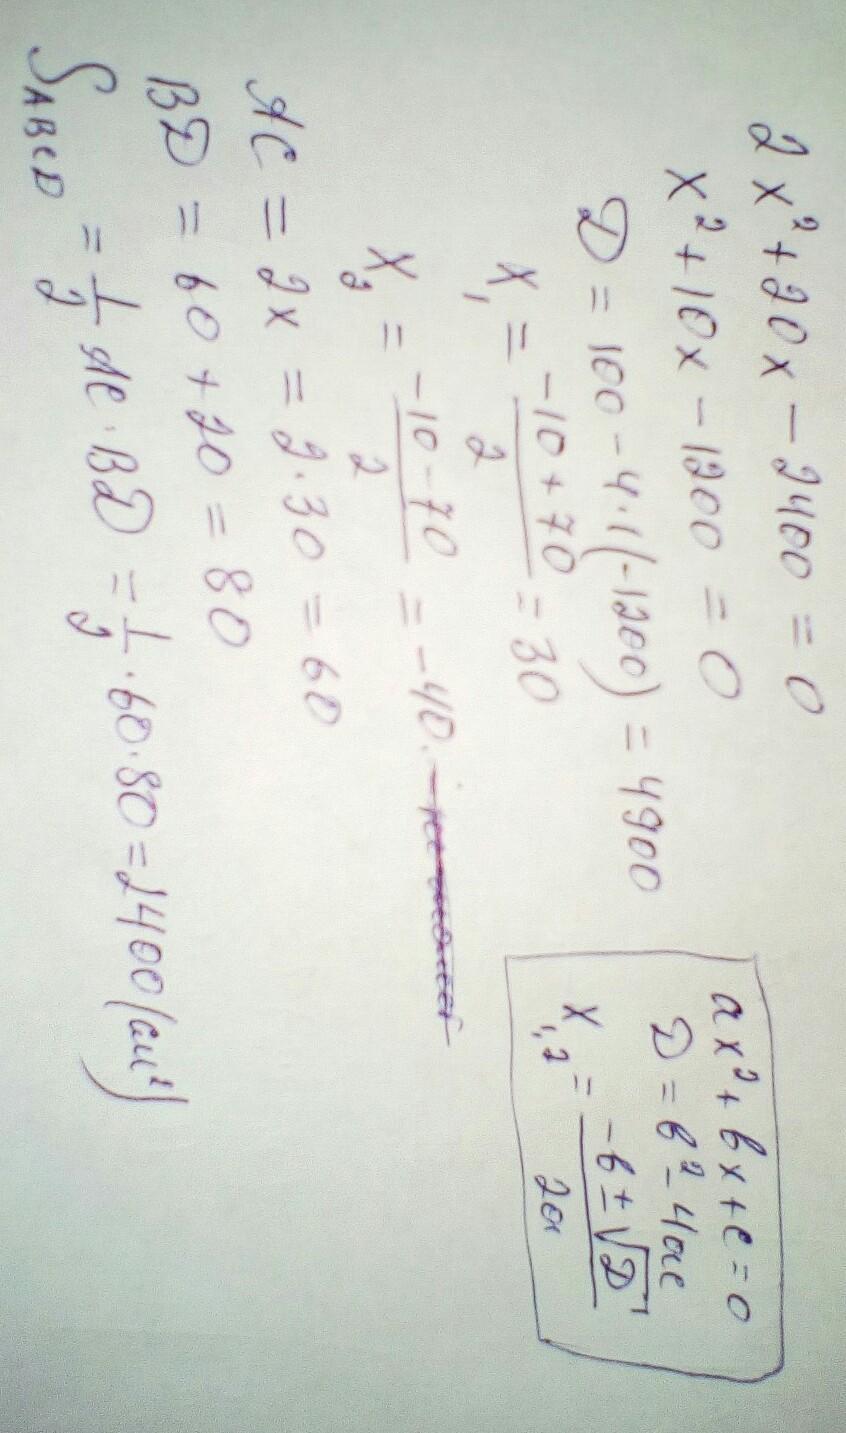 2x² + 20x - 2400 = 0
x² + 10x - 1200 = 0
D = 100 - 4·1(-1200) = 4900
x₁ = (-10 + 70)/2 = 30
x₂ = (-10 - 70)/2 = -40.
AC = 2x = 2·30 = 60
BD = 60 + 20 = 80
S_ABCD = 1/2 AC·BD = 1/2·60·80 = 2400 (см²)
ax² + вx + c = 0
D = в² - 4ac
x₁,₂ = (-в ± √D)/2a